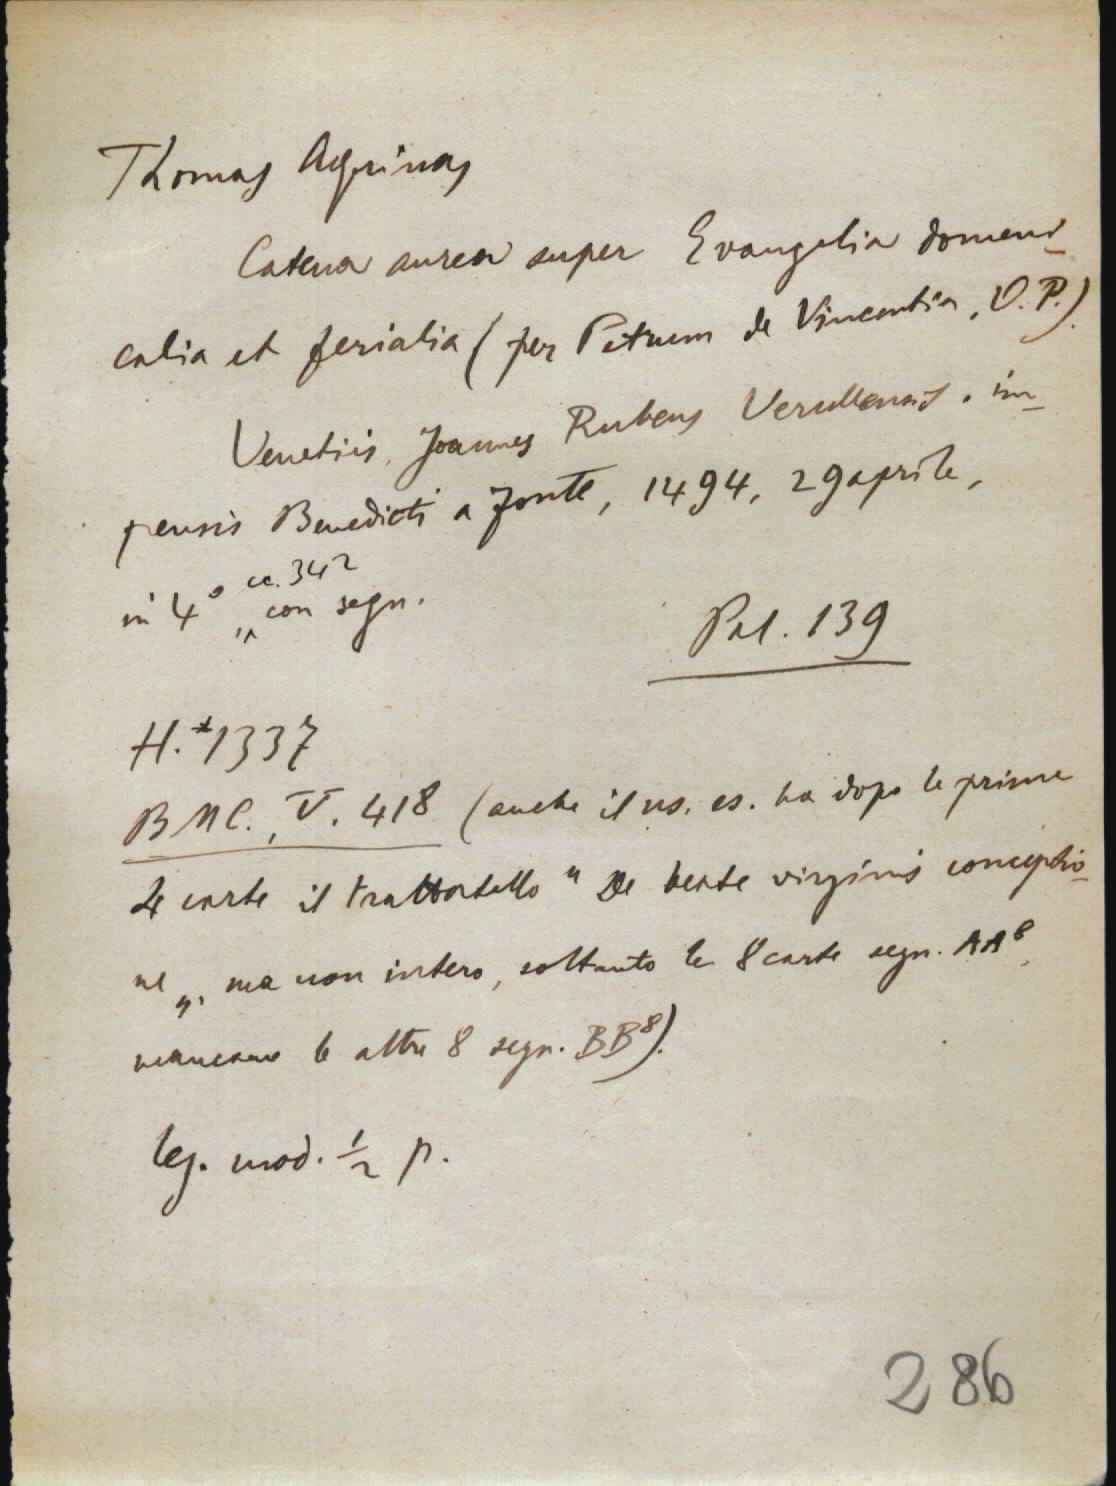 Thomas Aquinas
Catena aurea super Evangelia domeni-
calia et ferialia (per Petrum de Vincentia, O. P.)
Venetiis, Joannes Rubeus Vercellensis, im-
pensis Benedicti a Fonte, 1494, 29 aprile,
in 4° cc. 342 „ con segn.
Pal. 139
H.*1337
BMC., V. 418 (anche il ns. es. ha dopo le prime
4 carte il trattatello " De beate virginis conceptio-
ne „, ma non intero, soltanto le 8 carte segn. AA8,
mancano le altre 8 segn. BB8).
leg. mod. 1/2 p.
286